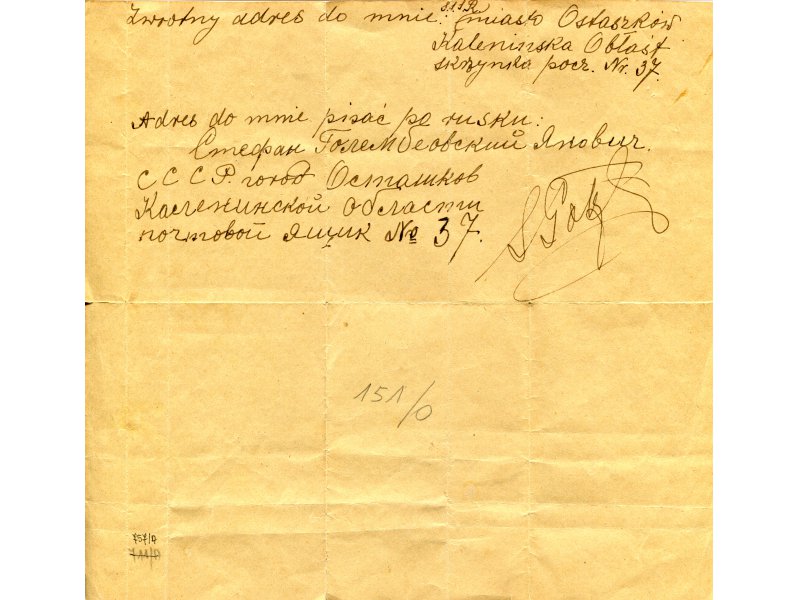 Zwrotny adres do mnie: S.S.S.R. miasto Ostaszków
Kaleninska Obłast
skrzynka pocz. Nr. 37.
Adres do mnie pisać po rusku:
Стефан Голембеовский Янович.
С С С Р. город Осташков
Каленинской области
почтовой Ящик № 37.
151/0
757/0